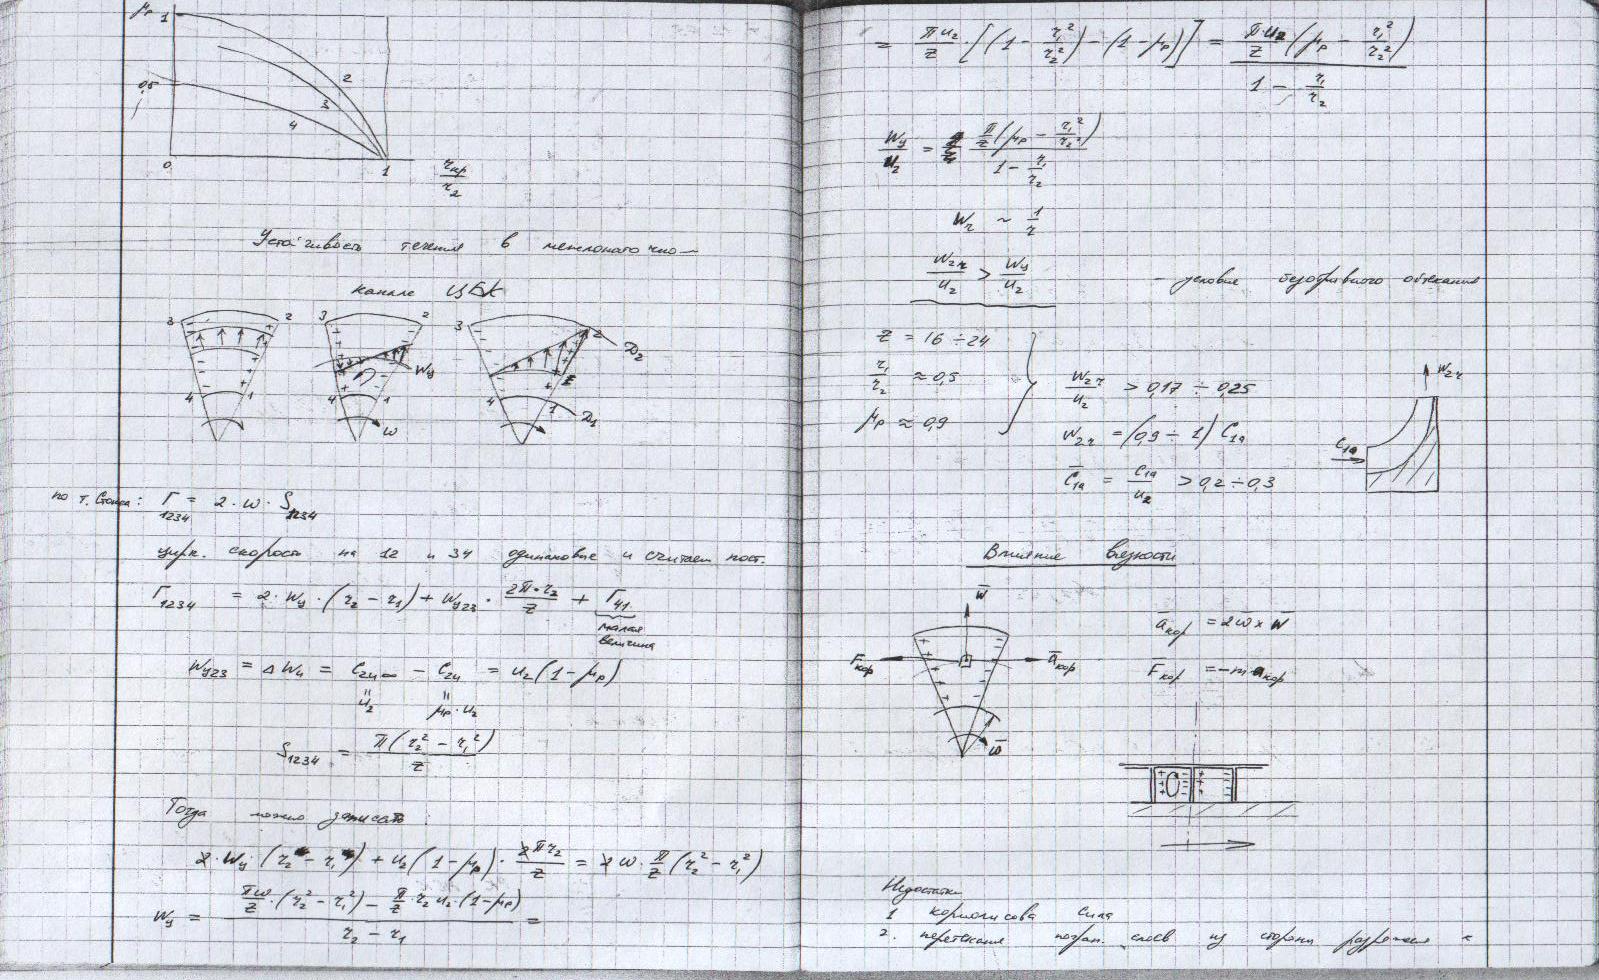 μр 1
0,5
2
3
4
0
1
r кр / r₂
Устойчивость течения в межлопаточно—
канале ЦБК
3 2 3 2 3 2 D₂
Wу
4 1 4 1 4 1 D₁
ω
по т. Стокса: Γ₁₂₃₄ = 2·ω·S₁₂₃₄
цирк. скорость на 12 и 34 одинаковые и считаем пост.
Γ₁₂₃₄ = 2·Wу·(r₂ − r₁) + Wу₂₃ · 2π·r₂/z + Γ₄₁
малая
величина
Wу₂₃ = ΔWu = C₂u∞ − C₂u = u₂(1−μр)
u₂ μр·u₂
S₁₂₃₄ = π(r₂² − r₁²)/z
Тогда можно записать:
2·Wу·(r₂ − r₁) + u₂(1−μр)·2πr₂/z = 2ω·π/z(r₂² − r₁²)
Wу = (πω/z·(r₂² − r₁²) − π/z·r₂u₂·(1−μр))/(r₂ − r₁) =
= πu₂/z [(1 − r₁²/r₂²) − (1−μр)] = πu₂/z (μр − r₁²/r₂²) / (1 − r₁/r₂)
Wу/u₂ = π/z (μр − r₁²/r₂²) / (1 − r₁/r₂)
Wr ~ 1/r
W₂r/u₂ > Wу/u₂ – условие безотрывного обтекания
z = 16 ÷ 24
r₁/r₂ ≈ 0,5
μр ≈ 0,9
W₂r/u₂ > 0,17 ÷ 0,25
W₂r = (0,9 ÷ 1) C₁a
C̄₁a = C₁a/u₂ > 0,2 ÷ 0,3
W₂r
C₁a
Влияние вязкости
W̄
Fкор āкор
ω̄
āкор = 2ω̄ × W̄
F̄кор = −m āкор
Недостатки
1 кориолисова сила
2. перетекания погран. слоёв из стороны разрежения к